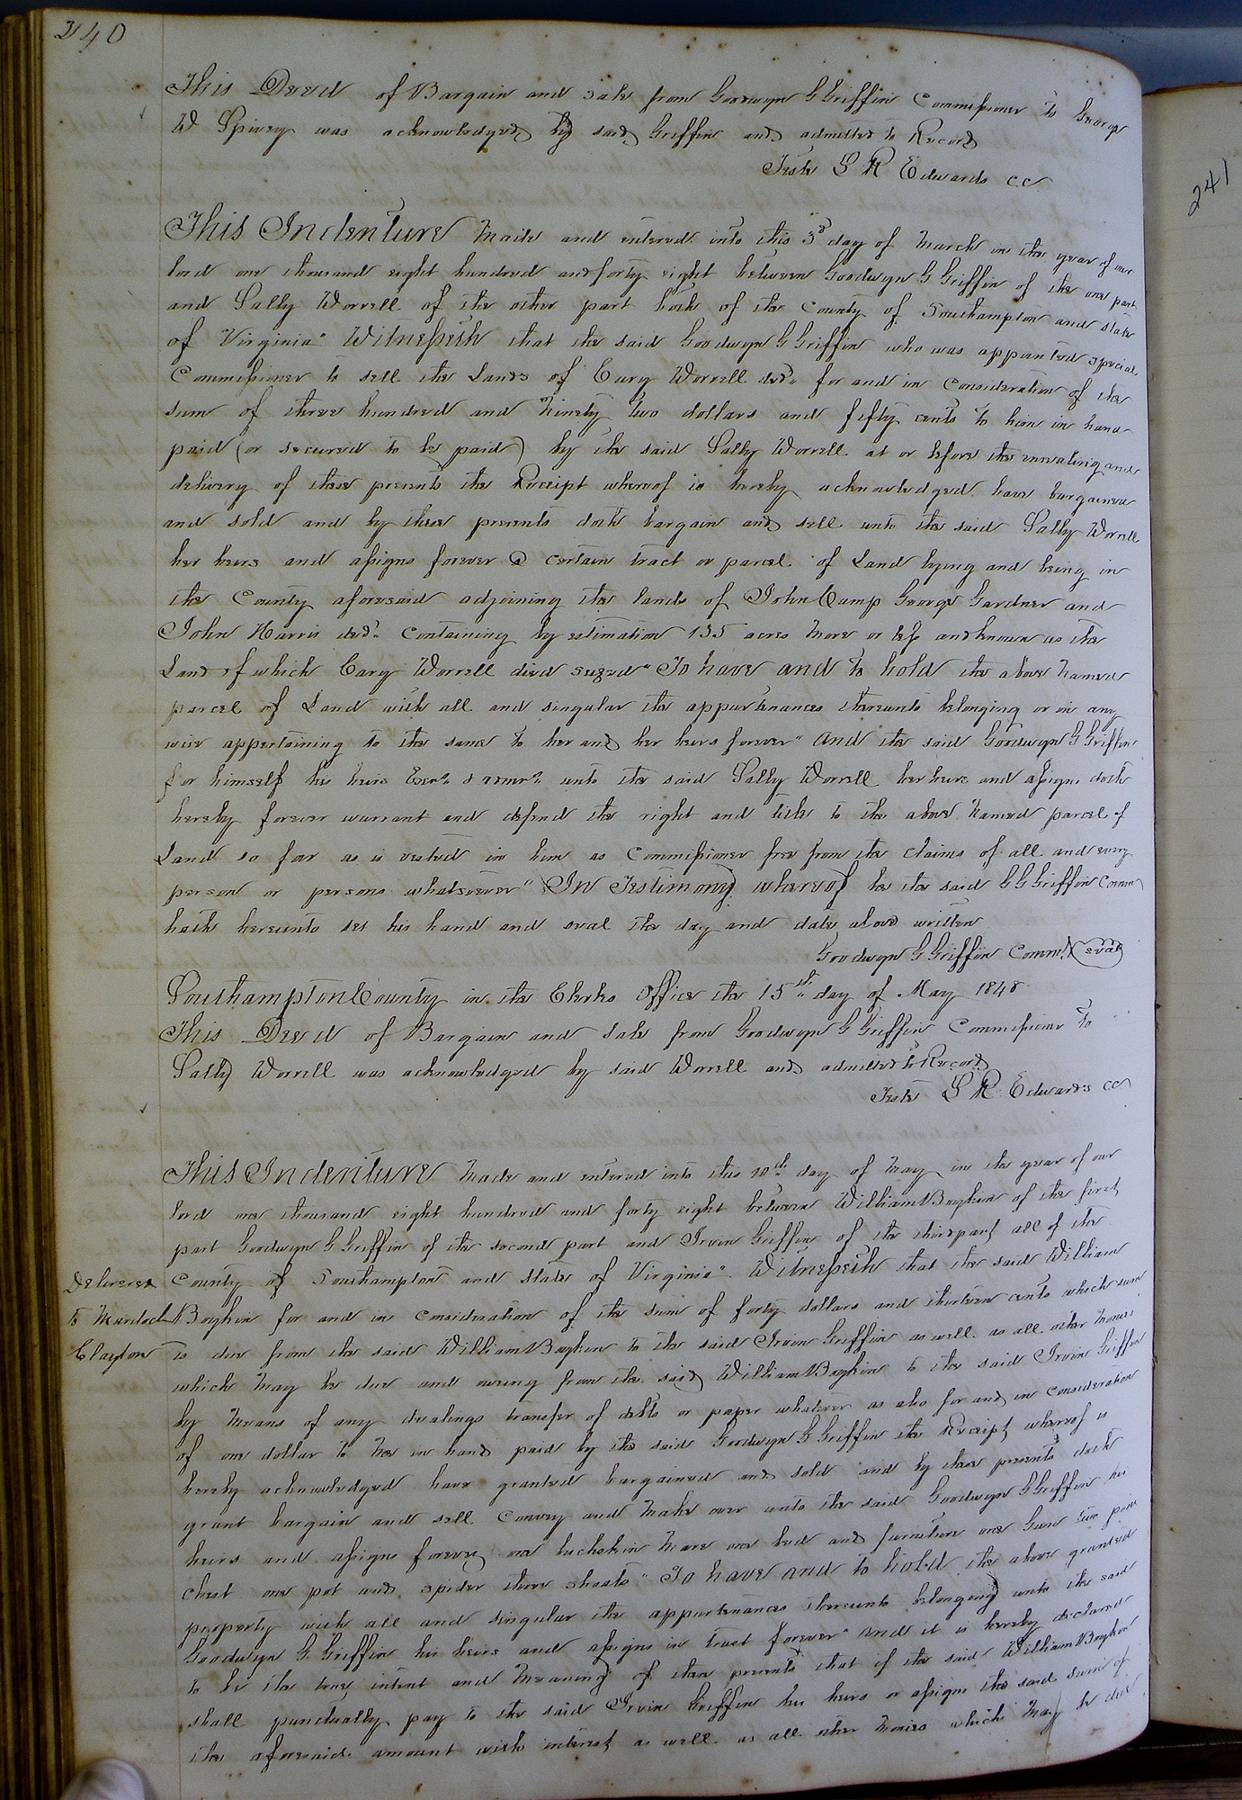 240
This Deed of Bargain and Sale from Goodwyn G Griffin Commissioner to George
W Spivey was acknowledged by said Griffin and admitted to Record
Teste L R Edwards cc
241
This Indenture Made and entered into this 3d day of March in the year of our
lord one thousand eight hundred and forty eight between Goodwyn G Griffin of the one part
and Sally Worrell of the other part both of the County of Southampton and State
of Virginia" Witnesseth that the said Goodwyn G Griffin who was appointed special
Commissioner to sell the Lands of Cary Worrell decd. for and in Consideration of the
sum of three hundred and Ninety two dollars and fifty cents to him in hand
paid (or secured to be paid) by the said Sally Worrell at or before the ensealing and
delivery of these presents the Receipt whereof is hereby acknowledged have bargained
and sold and by these presents doth bargain and sell unto the said Sally Worrell
her heirs and assigns forever a certain tract or parcel of Land lying and being in
the County aforesaid adjoining the lands of John Camp George Gardner and
John Harris decd. Containing by estimation 135 acres more or less and known as the
Land of which Cary Worrell died seized" To have and to hold the above Named
parcel of Land with all and singular the appurtenances thereunto belonging or in any
wise appertaining to the same to her and her heirs forever" And the said Goodwyn G Griffin
for himself his heirs Exors & admrs unto the said Sally Worrell her heirs and assigns doth
hereby forever warrant and defend the right and title to the above Named parcel of
Land so far as is vested in him as Commissioner free from the claims of all and every
person or persons whatsoever" In Testimony whereof he the said G G Griffin Commr
hath hereunto set his hand and seal the day and date above written
Goodwyn G Griffin Commr (seal)
Southampton County in the Clerks Office the 15th day of May 1848
This Deed of Bargain and Sale from Goodwyn G Griffin Commissioner to
Sally Worrell was acknowledged by said Worrell and admitted to Record
Teste L R Edwards cc
This Indenture Made and entered into this 10th day of May in the year of our
lord one thousand eight hundred and forty eight between William Boykin of the first
part Goodwyn G Griffin of the second part and Irvin Griffin of the third part all of the
Delivered
to Murdock
Clayton
County of Southampton and State of Virginia" Witnesseth that the said William
Boykin for and in consideration of the sum of forty dollars and thirteen cents which sum
is due from the said William Boykin to the said Irvin Griffin as well as all other Monies
which May be due and owing from the said William Boykin to the said Irvin Griffin
by Means of any dealings transfer of debts or paper whatever as also for and in consideration
of one dollar to me in hand paid by the said Goodwyn G Griffin the Receipt whereof is
hereby acknowledged have granted bargained and sold and by these presents doth
grant bargain and sell Convey and Make over unto the said Goodwyn G Griffin his
heirs and assigns forever one buckskin Mare one bed and furniture one Gun two pine
chest one pot and spider three shoats" To have and to hold the above granted
property with all and singular the appurtenances thereunto belonging unto the said
Goodwyn G Griffin his heirs and assigns in trust forever" And it is hereby declared
to be the true intent and Meaning of these presents that if the said William Boykin
shall punctually pay to the said Irvin Griffin his heirs or assigns the said sum of
the aforesaid amount with interest as well as all other Monies which May be due